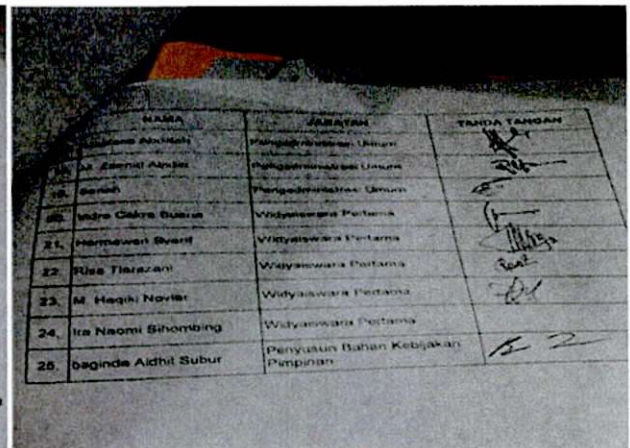 NAMA JABATAN TANDA TANGAN
Pengadministrasi Umum
M. Zaenal Pengadministrasi Umum
Pengadministrasi Umum
20. Indra Cakra Buana Widyaiswara Pertama
21. Hermawan Widyaiswara Pertama
22. Risa Tiarazani Widyaiswara Pertama
23. M. Haqiki Novier Widyaiswara Pertama
24. Ira Naomi Sihombing Widyaiswara Pertama
25. baginda Aidhit Subur Penyusun Bahan Kebijakan
Pimpinan